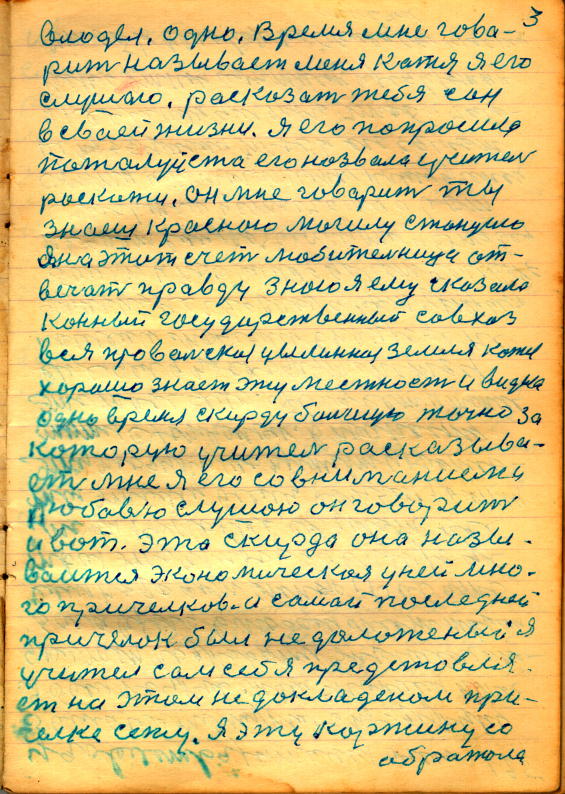 3
влодел. одно. Время мне гова-
рит называет меня Катя я его
слушаю. расказат тебя сон
в сваей жизни. я его попросила
пожалуйста его назвала учител
роскажи. он мне говарит ты
знаеш Красною могилу станцию
я на этот счет любителница от-
вечат правду знаю я ему сказала
Конный государственный совхоз
вся провалская целинная земля катя
хорошо знает эту местност и видна
одно время скирду болшую точно за
которую учител расказыва-
ет мне я его со вниманием и
любовю слушаю он говорит
и вот. Эта скирда она назы-
ваится экономическая у ней мно-
го причелков. а самай последней
причялок был не даложеный я
учител сам себя предстовля-
ет на этом не докладеном при-
челке сежу. Я эту картину со
ображала